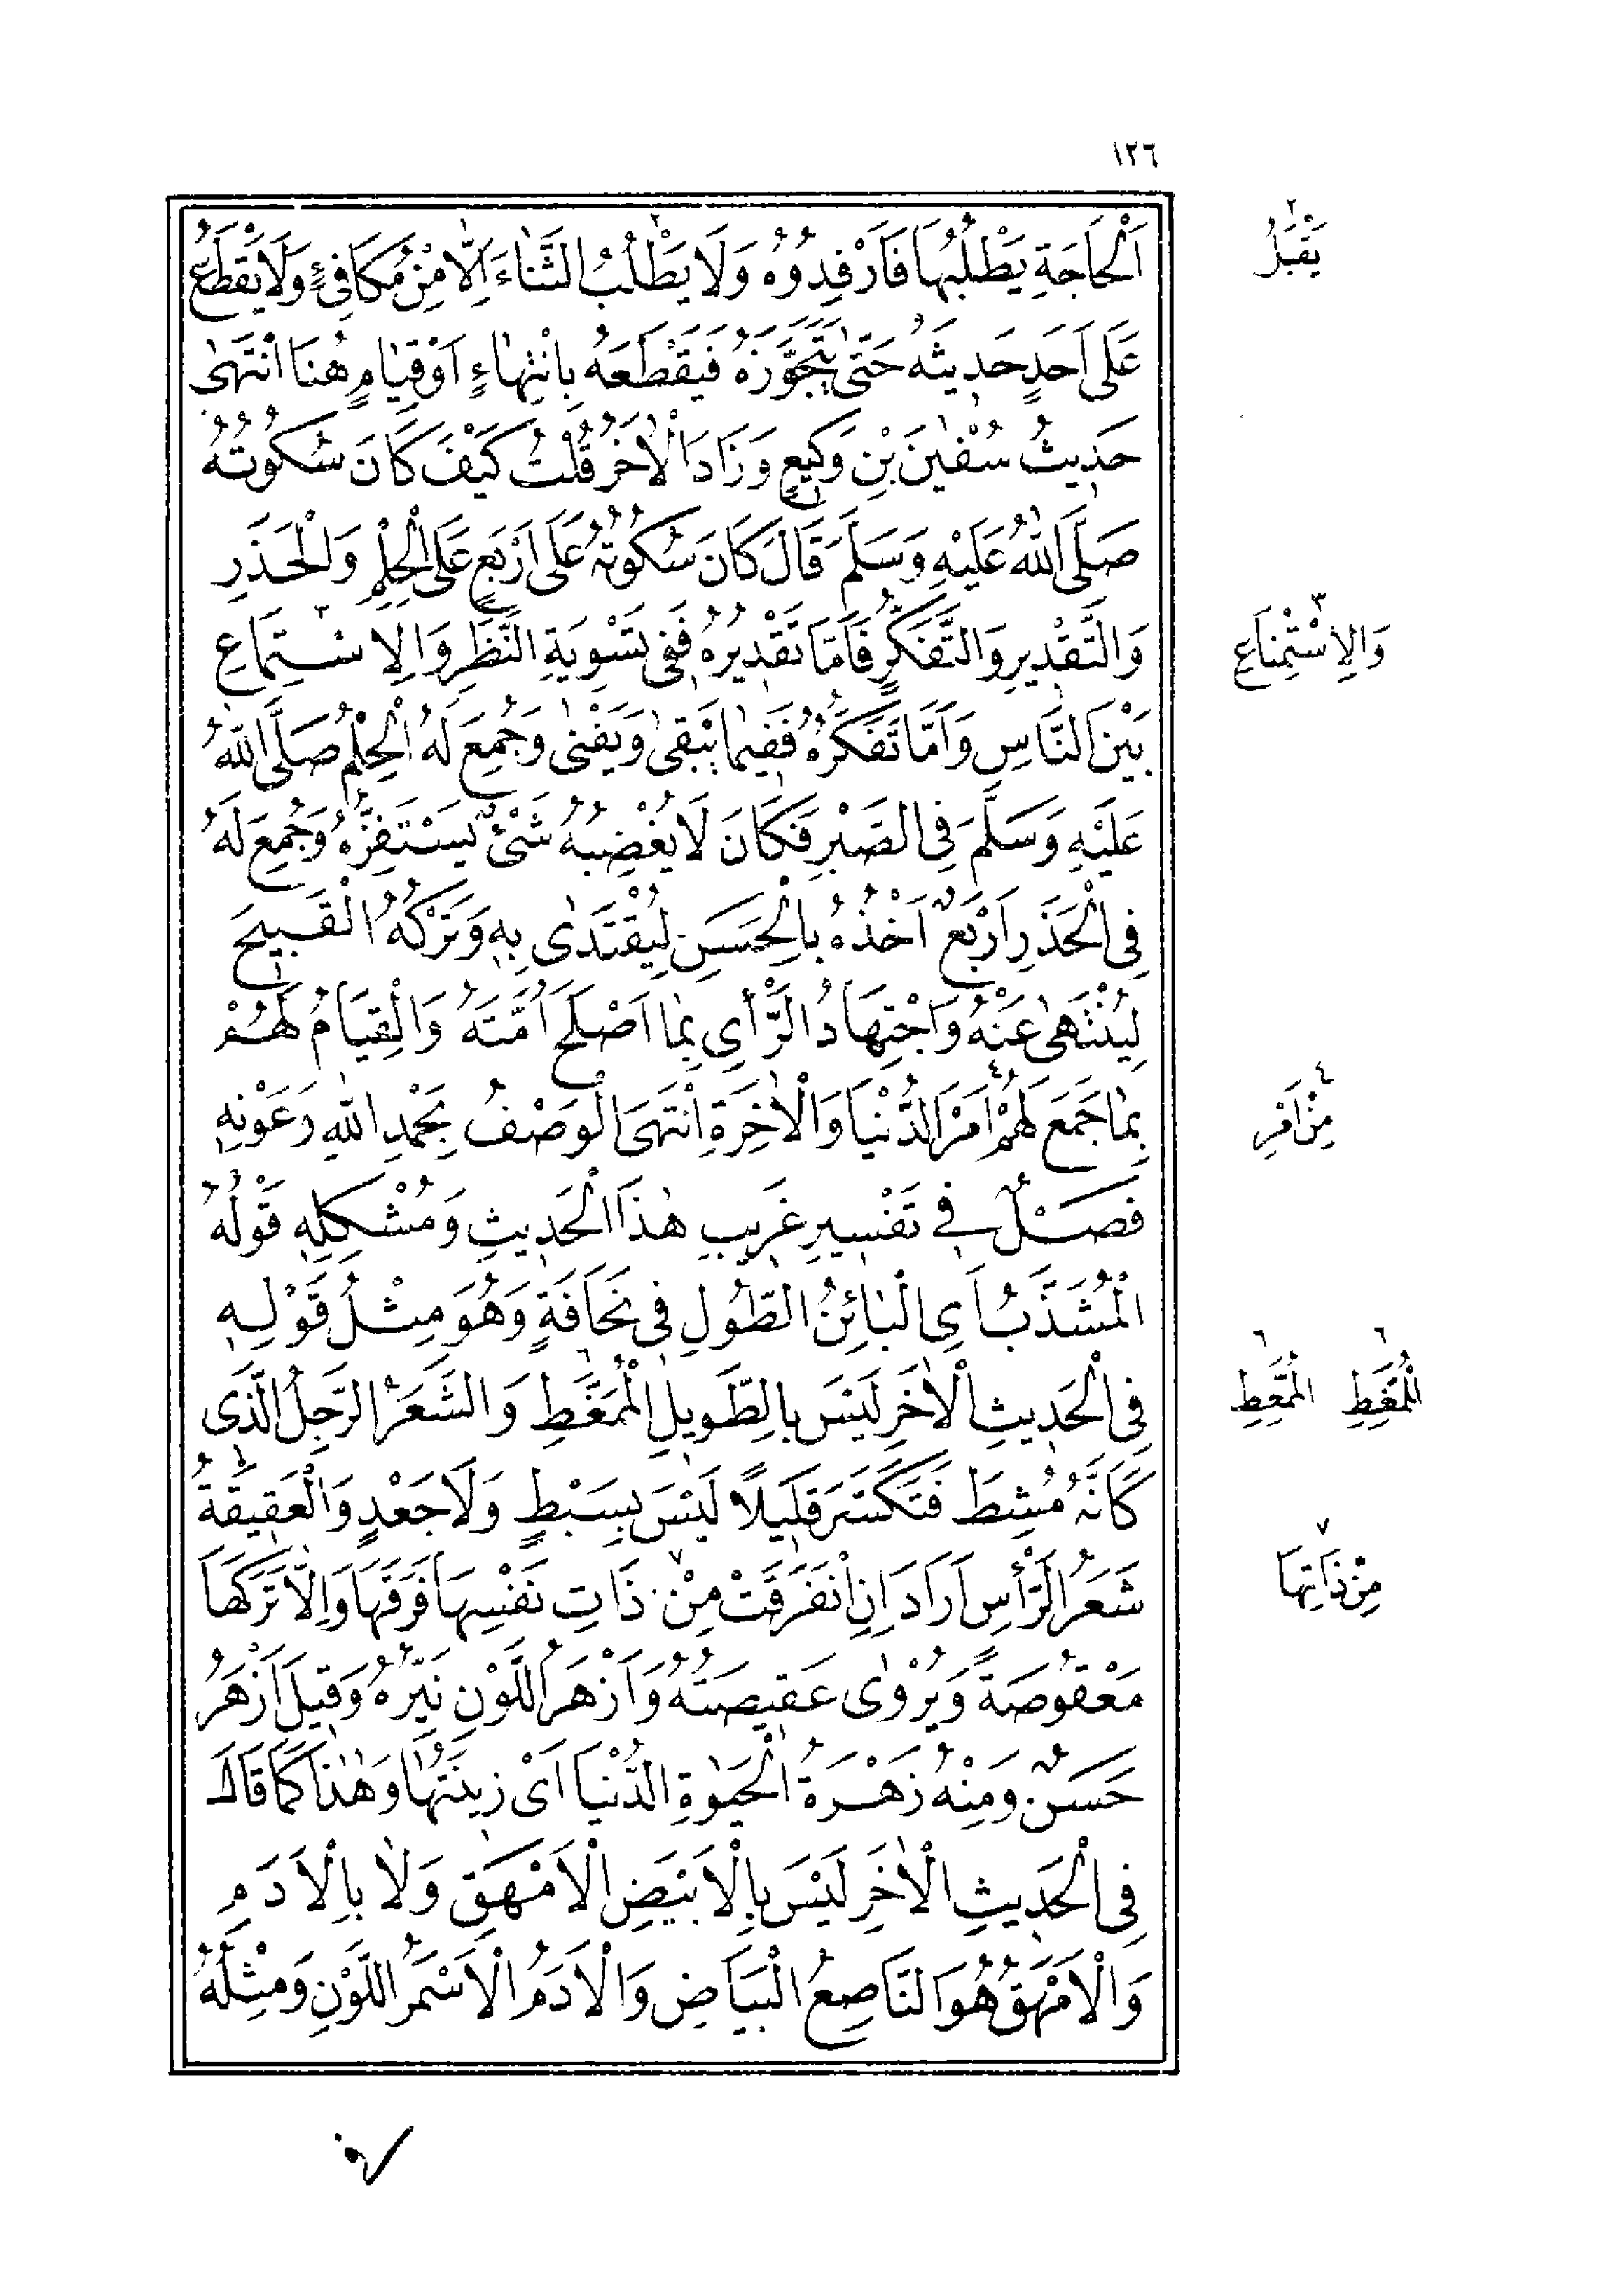 ١٢٦
اَلْحَاجَةِ يَطْلُبُهَا فَارْفِدُوُهُ وَلَا يَطْلُبُ الثَّنَاءَ اِلَّا مِنْ مُكَافِئٍ وَلَا يَقْطَعُ
عَلَى اَحَدٍ حَدِيثَهُ حَتّٰى يَتَجَوَّزَهُ فَيَقْطَعَهُ بِانْتِهَاءٍ اَوْ قِيَامٍ هُنَا انْتَهٰى
حَدِيثُ سُفْيٰنَ بْنِ وَكِيعٍ وَزَادَ الْاٰخَرُ قُلْتُ كَيْفَ كَانَ سُكُوتُهُ
صَلَّى اللّٰهُ عَلَيْهِ وَسَلَّمَ قَالَ كَانَ سُكُوتُهُ عَلَى اَرْبَعٍ عَلَى الْحِلْمِ وَالْحَذَرِ
وَالتَّقْدِيرِ وَالتَّفَكُّرِ فَاَمَّا تَقْدِيرُهُ فَفِى تَسْوِيَةِ النَّظَرِ وَالِاسْتِمَاعِ
بَيْنَ النَّاسِ وَاَمَّا تَفَكُّرُهُ فَفِيمَا يَبْقٰى وَيَفْنٰى وَجُمِعَ لَهُ الْحِلْمُ صَلَّى اللّٰهُ
عَلَيْهِ وَسَلَّمَ فِى الصَّبْرِ فَكَانَ لَا يُغْضِبُهُ شَئْ يَسْتَفِزُّهُ وَجُمِعَ لَهُ
فِى الْحَذَرِ اَرْبَعٌ اَخْذُهُ بِالْحَسَنِ لِيُقْتَدٰى بِهِ وَتَرْكُهُ الْقَبِيحَ
لِيُنْتَهٰى عَنْهُ وَاجْتِهَادُ الرَّأْىِ بِمَا اَصْلَحَ اُمَّتَهُ وَالْقِيَامُ لَهُمْ
بِمَا جَمَعَ لَهُمْ اَمْرَ الدُّنْيَا وَالْاٰخِرَةِ انْتَهَى الْوَصْفُ بِحَمْدِ اللّٰهِ وَعَوْنِهِ
فَصْلٌ فِى تَفْسِيرِ غَرِيبِ هٰذَا الْحَدِيثِ وَمُشْكِلِهِ قَوْلُهُ
الْمُشَذَّبُ اَىِ الْبَائِنُ الطُّولِ فِى نَحَافَةٍ وَهُوَ مِثْلُ قَوْلِهِ
فِى الْحَدِيثِ الْاٰخَرِ لَيْسَ بِالطَّوِيلِ الْمُمَغَّطِ وَالشَّعَرُ الرَّجِلُ الَّذِى
كَاَنَّهُ مُشِطَ فَتَكَسَّرَ قَلِيلًا لَيْسَ بِسَبْطٍ وَلَا جَعْدٍ وَالْعَقِيقَةُ
شَعَرُ الرَّأْسِ اَرَادَ اِنِ انْفَرَقَتْ مِنْ ذَاتِ نَفْسِهَا فَرَقَهَا وَاِلَّا تَرَكَهَا
مَعْقُوصَةً وَيُرْوٰى عَقِيصَتُهُ وَاَزْهَرُ اللَّوْنِ نَيِّرُهُ وَقِيلَ اَزْهَرُ
حَسَنٌ وَمِنْهُ زَهْرَةُ الْحَيٰوةِ الدُّنْيَا اَىْ زِينَتُهَا وَهٰذَا كَمَا قَالَ
فِى الْحَدِيثِ الْاٰخَرِ لَيْسَ بِالْاَبْيَضِ الْاَمْهَقِ وَلَا بِالْاٰدَمِ
وَالْاَمْهَقُ هُوَ النَّاصِعُ الْبَيَاضِ وَالْاٰدَمُ الْاَسْمَرُ اللَّوْنِ وَمِثْلُهُ
٢ يَقْبَلُ
٣ وَالِاسْتِمْنَاعِ
٤ مِنْ اَمْرِ
٦ الْمُمَغِّطِ ٦ الْمُمَّعِطِ
٧ مِنْ ذَاتِهَا